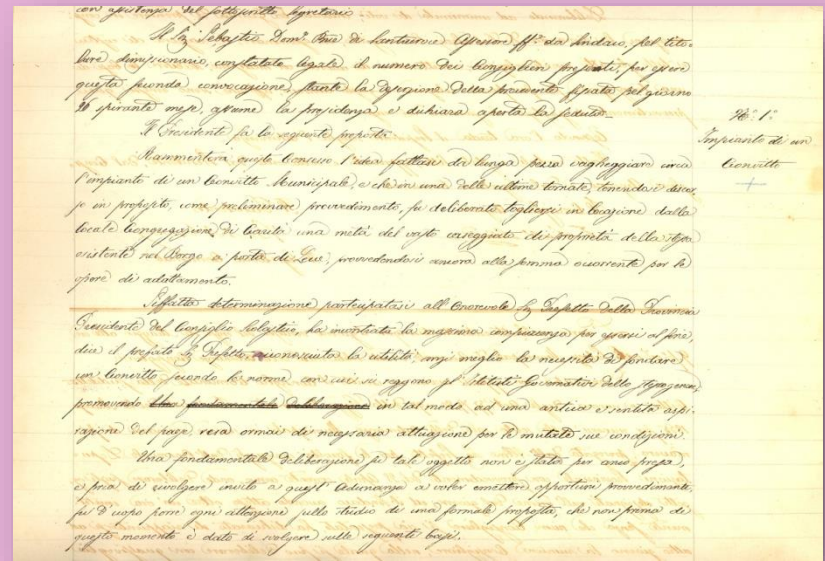 con assistenza del sottoscritto Segretario
Il Sig. Sebastio Dom.co Assessore ff.da Sindaco, pel tito-
lare dimissionario, constatato legale il numero dei Consiglieri presenti, per essere
questa seconda convocazione, stante la diserzione della precedente fissata pel giorno
20 spirante mese, assume la presidenza e dichiara aperta la seduta.
Il Presidente fa la seguente proposta
Rammenterà questo Consesso l'idea fattasi da lunga pezza vagheggiare circa
l'impianto di un Convitto Municipale, e che in una delle ultime tornate, tenendosi discor-
so in proposito, come preliminare provvedimento, fu deliberato togliersi in locazione dalla
locale Congregazione di Carità una metà del vasto caseggiato di proprietà della stessa
esistente nel Borgo a porta di Lecce, provvedendosi ancora alla somma occorrente per le
opere di adattamento.
Siffatta determinazione partecipatasi all'Onorevole Sig. Prefetto della Provincia
Presidente del Consiglio Scolastico, ha incontrata la massima compiacenza per essersi al fine,
dice il prefato Sig. Prefetto, riconosciuta la utilità, anzi meglio la necessità di fondare
un Convitto secondo le norme con cui si reggono gl'Istituti Governativi dello stesso genere,
promovendo Una fondamentale deliberazione in tal modo ad una antica e sentita aspi-
razione del paese, resa ormai di necessaria attuazione per le mutate sue condizioni.
Una fondamentale deliberazione su tale oggetto non è stata per anco presa,
e pria di rivolgere invito a quest'Adunanza a voler emettere opportuni provvedimenti,
fu d'uopo porre ogni attenzione sullo studio di una formale proposta, che non prima di
questo momento è dato di svolgere sulle seguenti basi.
N.o 1.o
Impianto di un
Convitto